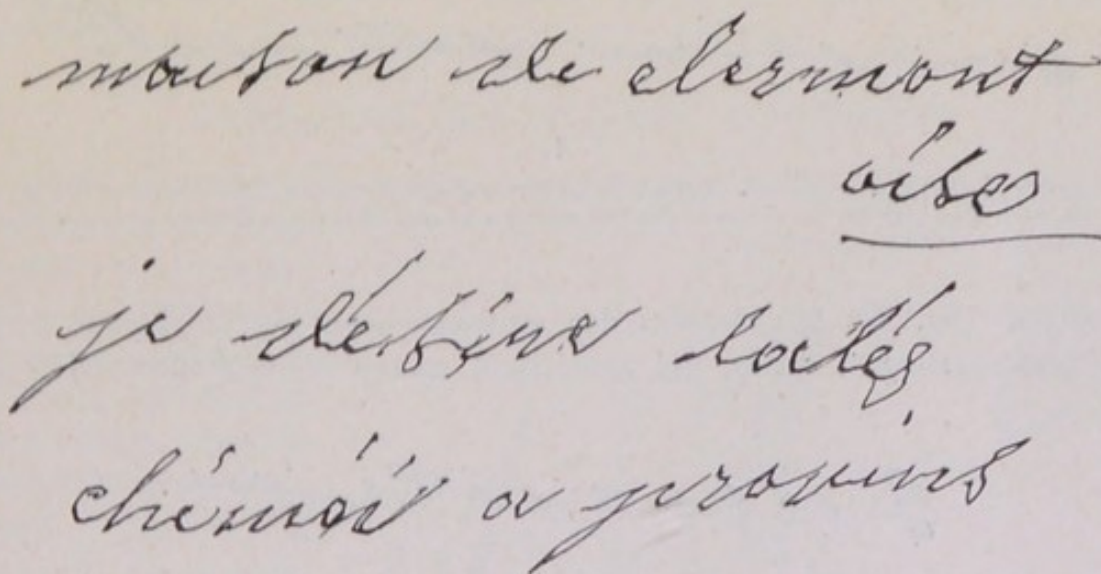 maison de clermont
oise
je désire
chémoi a provins